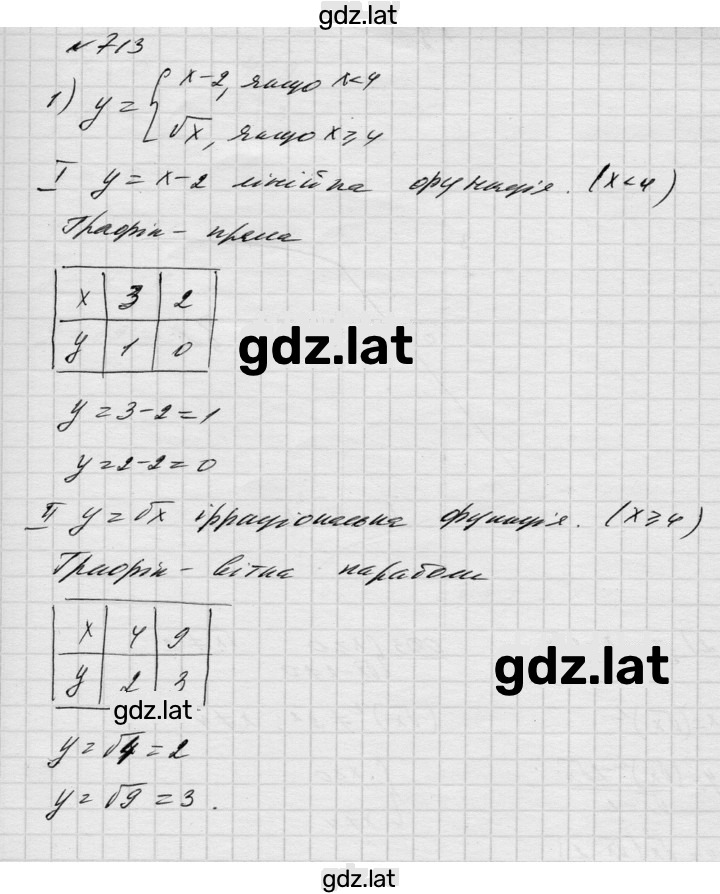 gdz.lat
№713
1) y = { x-2, якщо x<4
√x, якщо x⩾4
I y = x-2 лінійна функція. (x<4)
Графік - пряма
x | 3 | 2
y | 1 | 0
gdz.lat
y = 3-2 = 1
y = 2-2 = 0
II y = √x ірраціональна функція. (x⩾4)
Графік - вітка параболи
x | 4 | 9
y | 2 | 3
gdz.lat
gdz.lat
y = √4 = 2
y = √9 = 3.
gdz.lat